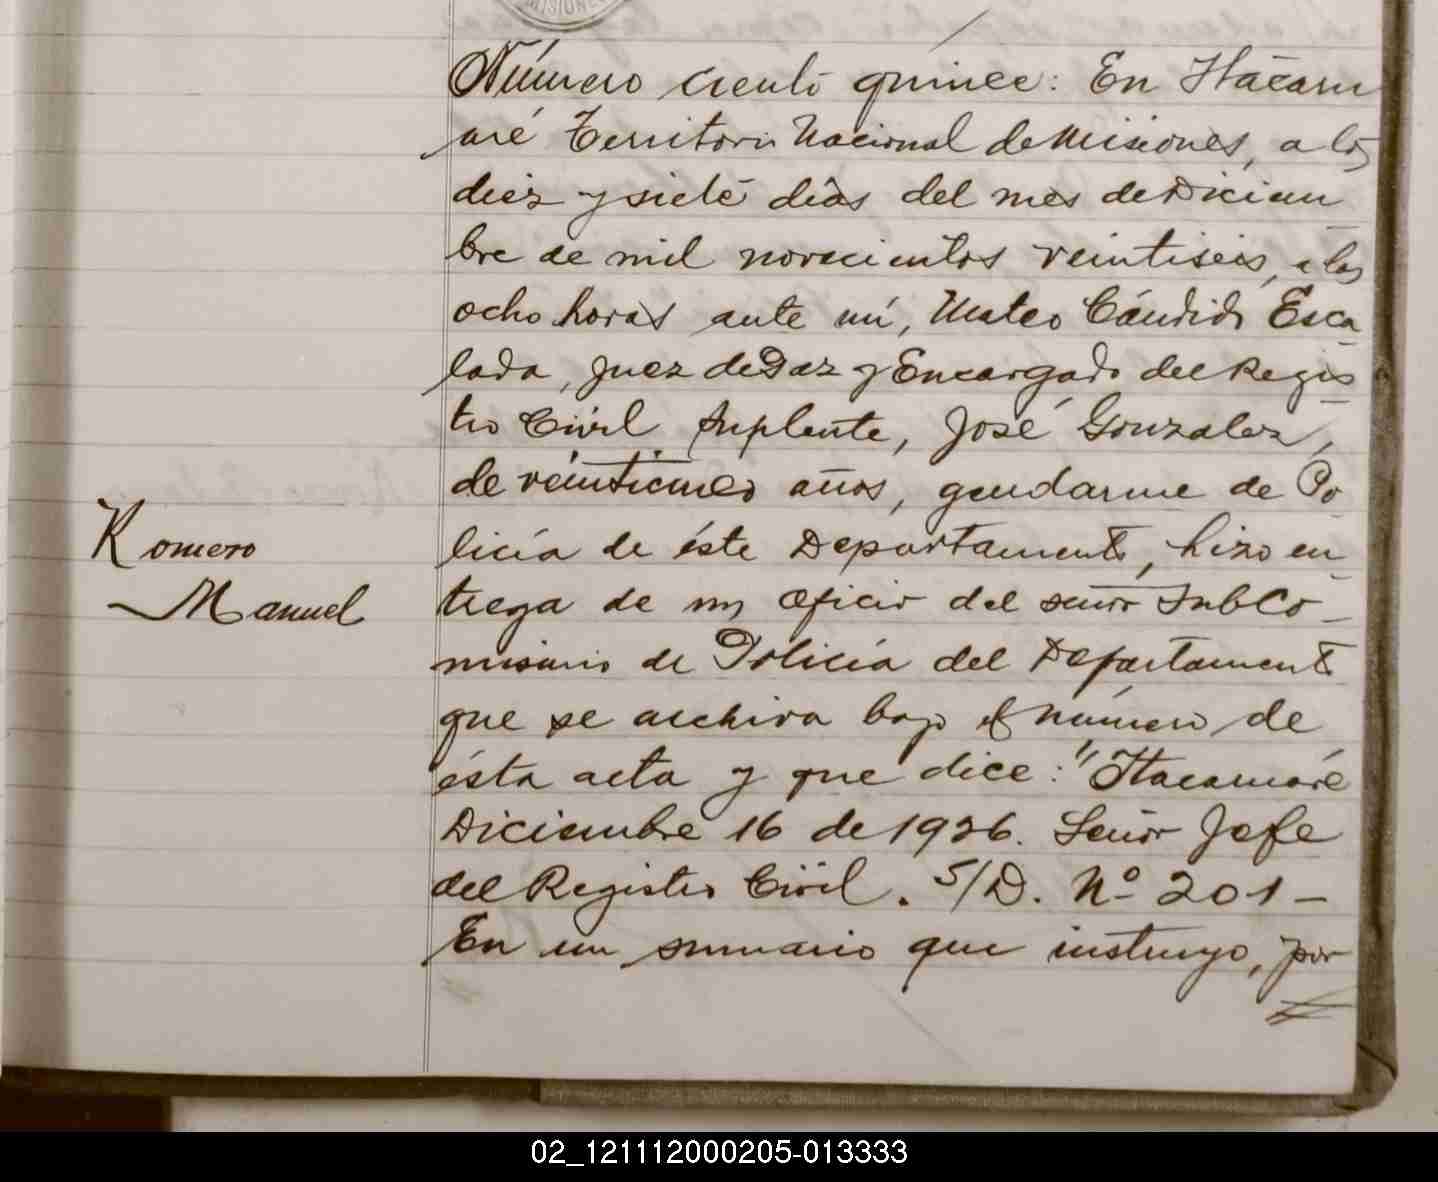 MISIONES
Número ciento quince: En Itacaru
aré Territorio Nacional de Misiones, a los
diez y siete días del mes de Diciem
bre de mil novecientos veintiseis, a las
ocho horas ante mí, Mateo Cándido Esca
lada, Juez de Paz y Encargado del Regis
tro Civil Suplente, José Gonzalez,
de veinticinco años, gendarme de Po
licía de éste Departamento, hizo en
Romero
trega de un Oficio del señor SubCo
Manuel
misario de Policía del Departamento
que se archiva bajo el número de
ésta acta y que dice: "Itacaruaré
Diciembre 16 de 1926. Señor Jefe
del Registro Civil. S/D. Nº 201 -
En un sumario que instruyo, por
02_121112000205-013333